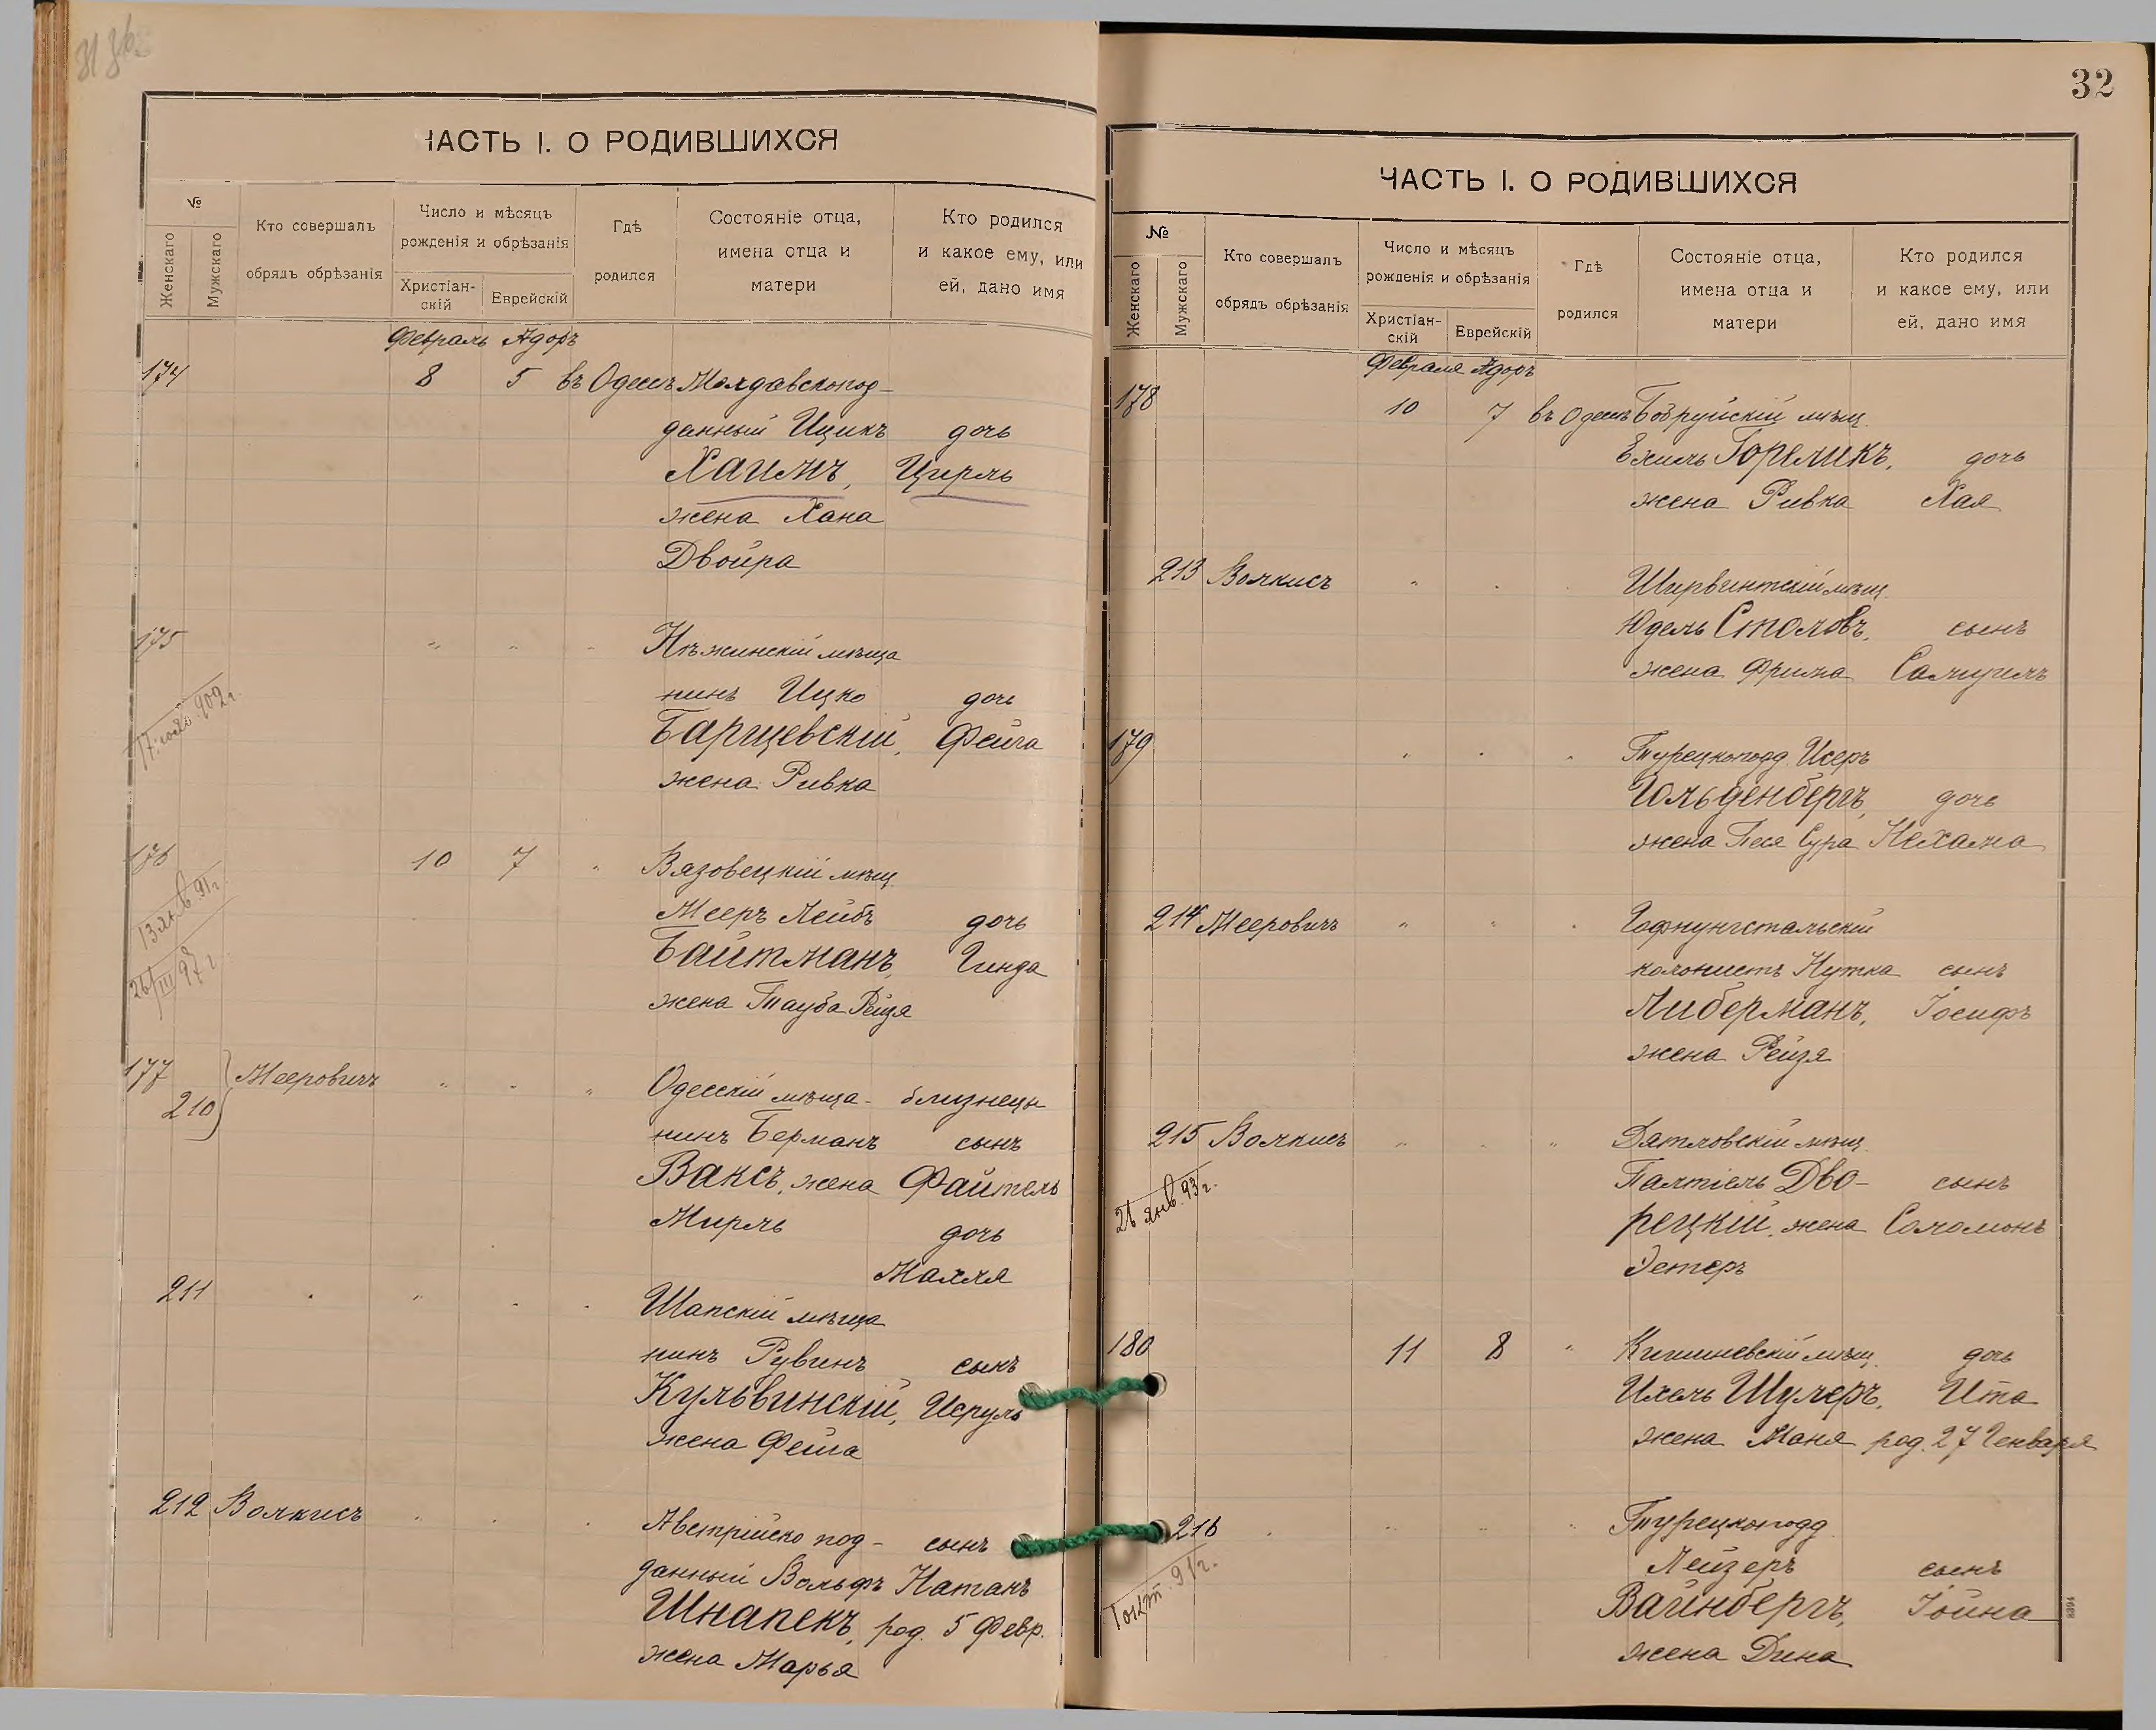 ЧАСТЬ I. О РОДИВШИХСЯ
№
Женскаго
Мужскаго
Кто совершалъ
обрядъ обрѣзанія
Число и мѣсяцъ
рожденія и обрѣзанія
Христіан-
скій
Еврейскій
Гдѣ
родился
Состояніе отца,
имена отца и
матери
Кто родился
и какое ему, или
ей, дано имя
Февраль Адоръ
174 8 5 въ Одессѣ Молдавскопод-
данный Ицикъ дочь
Хаимъ, Цирль
жена Хана
Двойра
175 " " " Нѣжинскій мѣща
нинъ Ицко дочь
17 902 г.
Барщевскій, Фейга
жена Ривка
176 10 7 " Вязовецкій мѣщ.
Мееръ Лейбъ дочь
13 янв 91 г.
Байтманъ, Гинда
26/III 97 г.
жена Тауба Рейзя
177 Мееровичъ " " " Одесскій мѣща- близнецы
210
нинъ Берманъ сынъ
Ваксъ, жена Файтель
Мирль дочь
Малля
211 " " " " Шапскій мѣща
нинъ Рувинъ сынъ
Кульвинскій, Исруль
жена Фейга
212 Волкисъ " " " Австрійско под- сынъ
данный Вольфъ Натанъ
Шнапекъ, род. 5 Февр.
жена Марья
32
ЧАСТЬ I. О РОДИВШИХСЯ
№
Женскаго
Мужскаго
Кто совершалъ
обрядъ обрѣзанія
Число и мѣсяцъ
рожденія и обрѣзанія
Христіан-
скій
Еврейскій
Гдѣ
родился
Состояніе отца,
имена отца и
матери
Кто родился
и какое ему, или
ей, дано имя
Февраля Адоръ
178 10 7 въ Одессѣ Бобруйскій мѣщ.
Ехиль Гореликъ, дочь
жена Ривка Хая
213 Волкисъ " " " Ширвинтскій мѣщ.
Юдель Столовъ, сынъ
жена Фрима Самуилъ
179 " " " Турецкоподд. Исеръ
Гольденбергъ, дочь
жена Песя Сура Нехама
214 Мееровичъ " " " Гофнунгстальскій
колонистъ Нутка сынъ
Либерманъ, Іосифъ
жена Рейзя
215 Волкисъ " " " Дятловскій мѣщ.
Палтіель Дво- сынъ
26 янв. 93 г.
рецкій, жена Соломонъ
Эстеръ
180 11 8 " Кишиневскій мѣщ. дочь
Ихель Шулеръ, Ита
жена Маня род. 27 Генваря
216 " " " " Турецкоподд.
Лейзеръ сынъ
1 окт. 91 г.
Вайнбергъ, Іойна
жена Дина
8394